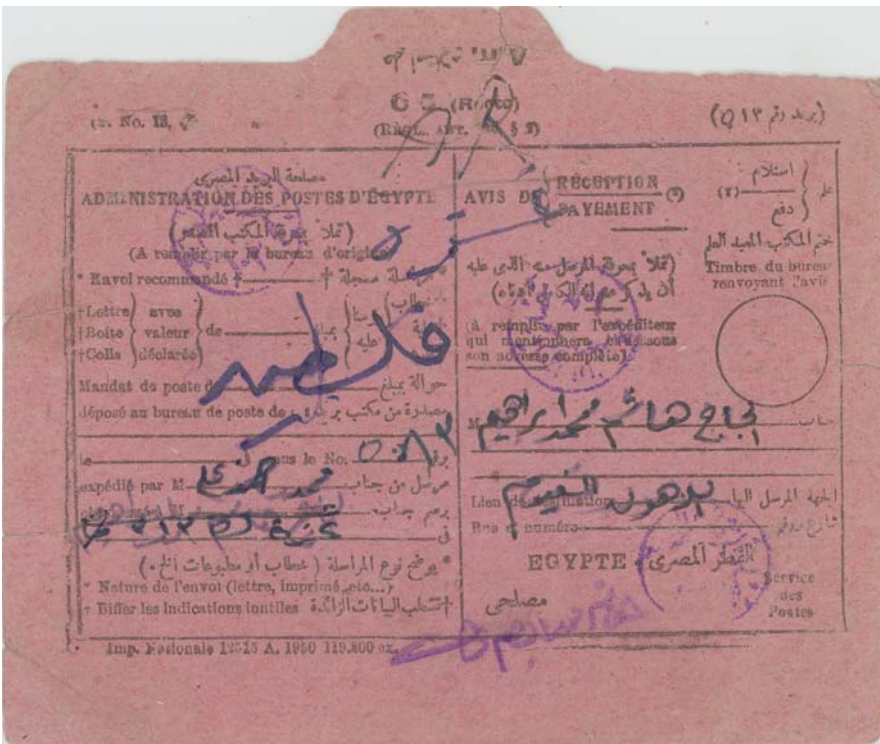 C 5 (Recto)
(RÈGL., ART. § 2)
No. 13,
(بريد رقم ١٣ ٥)
AR
مصلحة البريد المصرى
ADMINISTRATION DES POSTES D'ÉGYPTE
(تملأ بمعرفة المكتب المصدر)
(A remplir par le bureau d'origine)
* Envoi recommandé †
مراسلة مسجلة † *
†Lettre avec
†Boîte valeur de
†Colis déclarée
Mandat de poste de
حوالة بمبلغ
déposé au bureau de poste de
مصدرة من مكتب بريد
غزة
le sous le No. ٥٠٨٣ برقم
expédié par M محمد مرسل من جناب
برسم جناب
* يوضح نوع المراسلة (خطاب أو مطبوعات الخ.)
* Nature de l'envoi (lettre, imprimé, etc...)
† Biffer les indications inutiles
†تشطب البيانات الزائدة
Imp. Nationale 12515 A. 1950 119.800 ex.
AVIS DE RÉCEPTION (*)
PAYEMENT
علم استلام (٢)
دفع
ختم المكتب المعيد العلم
Timbre du bureau
renvoyant l'avis
(تملأ بمعرفة المرسل الذى عليه
أن يذكر عنوانه الكامل أدناه)
(à remplir par l'expéditeur
qui mentionnera ci-dessous
son adresse complète)
M الحاج هاشم محمد ابراهيم جناب
Lieu de destination الجهة المرسل اليها
Rue et numéro شارع ورقم
EGYPTE . القطر المصرى
مصلحى
Service
des
Postes